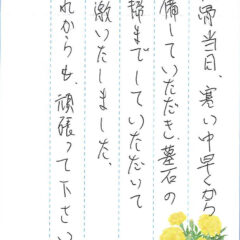 当日、寒い中早くから
備していただき、墓石の
までしていただいて
激いたしました。
れからも、頑張って下さい